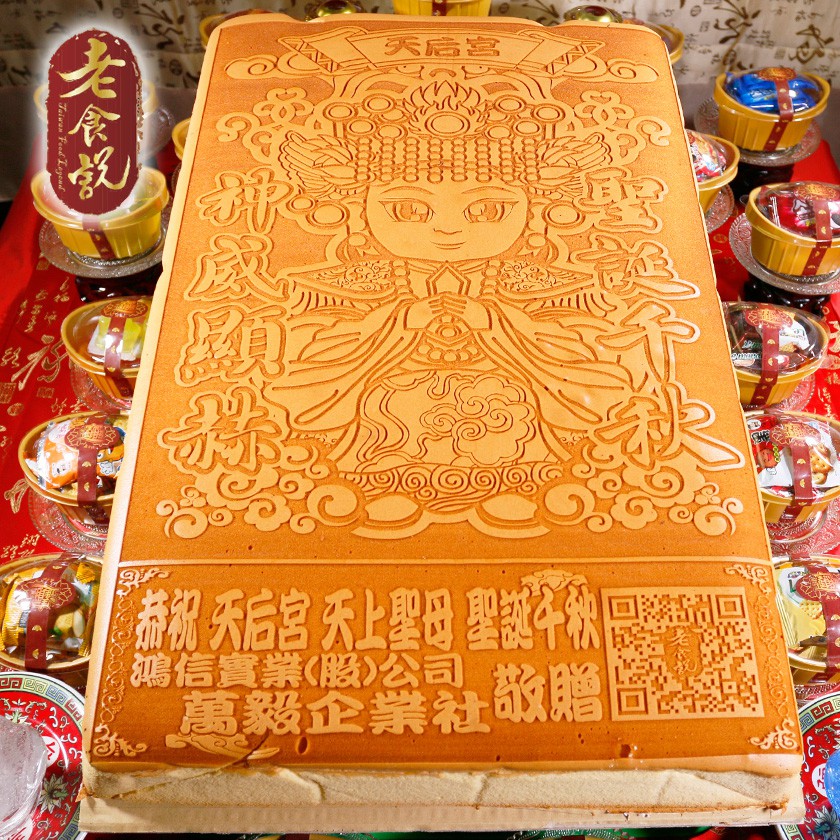 老食說
Taiwan Food Legend
天后宮
聖誕千秋
神威顯赫
恭祝 天后宮 天上聖母 聖誕千秋
鴻信實業(股)公司
萬毅企業社 敬贈
老食說